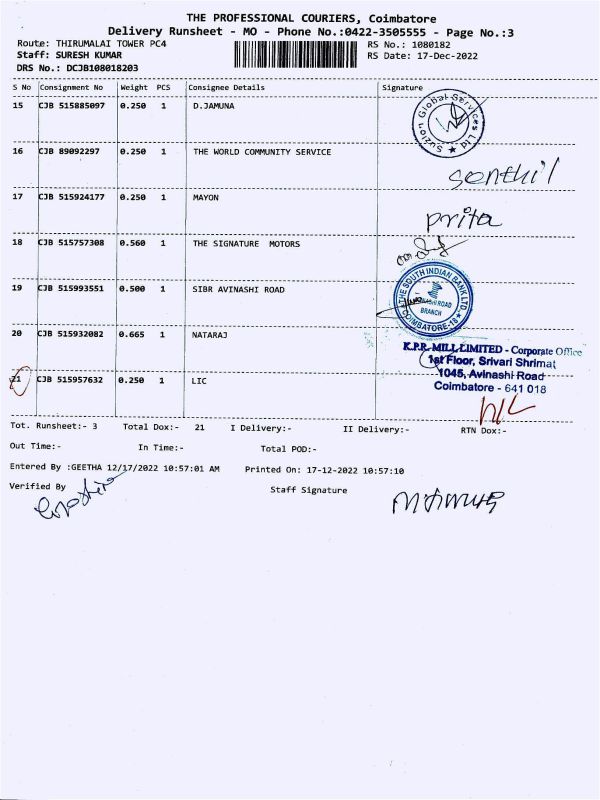 THE PROFESSIONAL COURIERS, Coimbatore
Delivery Runsheet - MO - Phone No.:0422-3505555 - Page No.:3
Route: THIRUMALAI TOWER PC4 RS No.: 1080182
Staff: SURESH KUMAR RS Date: 17-Dec-2022
DRS No.: DCJB108018203
S No Consignment No Weight PCS Consignee Details Signature
15 CJB 515885097 0.250 1 D.JAMUNA
Suzlon Global Services Ltd
16 CJB 89092297 0.250 1 THE WORLD COMMUNITY SERVICE
Senthil
17 CJB 515924177 0.250 1 MAYON
Prita
18 CJB 515757308 0.560 1 THE SIGNATURE MOTORS
19 CJB 515993551 0.500 1 SIBR AVINASHI ROAD
THE SOUTH INDIAN BANK LTD
AVINASHI ROAD
BRANCH
COIMBATORE-18
20 CJB 515932082 0.665 1 NATARAJ
K.P.R. MILL LIMITED - Corporate Office
1st Floor, Srivari Shrimat
1045, Avinashi Road
Coimbatore - 641 018
21 CJB 515957632 0.250 1 LIC
Tot. Runsheet:- 3 Total Dox:- 21 I Delivery:- II Delivery:- RTN Dox:-
Out Time:- In Time:- Total POD:-
Entered By :GEETHA 12/17/2022 10:57:01 AM Printed On: 17-12-2022 10:57:10
Verified By Staff Signature